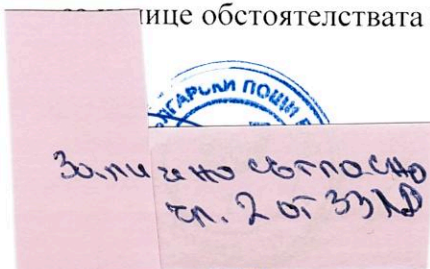 нице обстоятелствата
БЪЛГАРСКИ ПОЩИ Е
Заличено съгласно
чл. 2 от ЗЗЛД